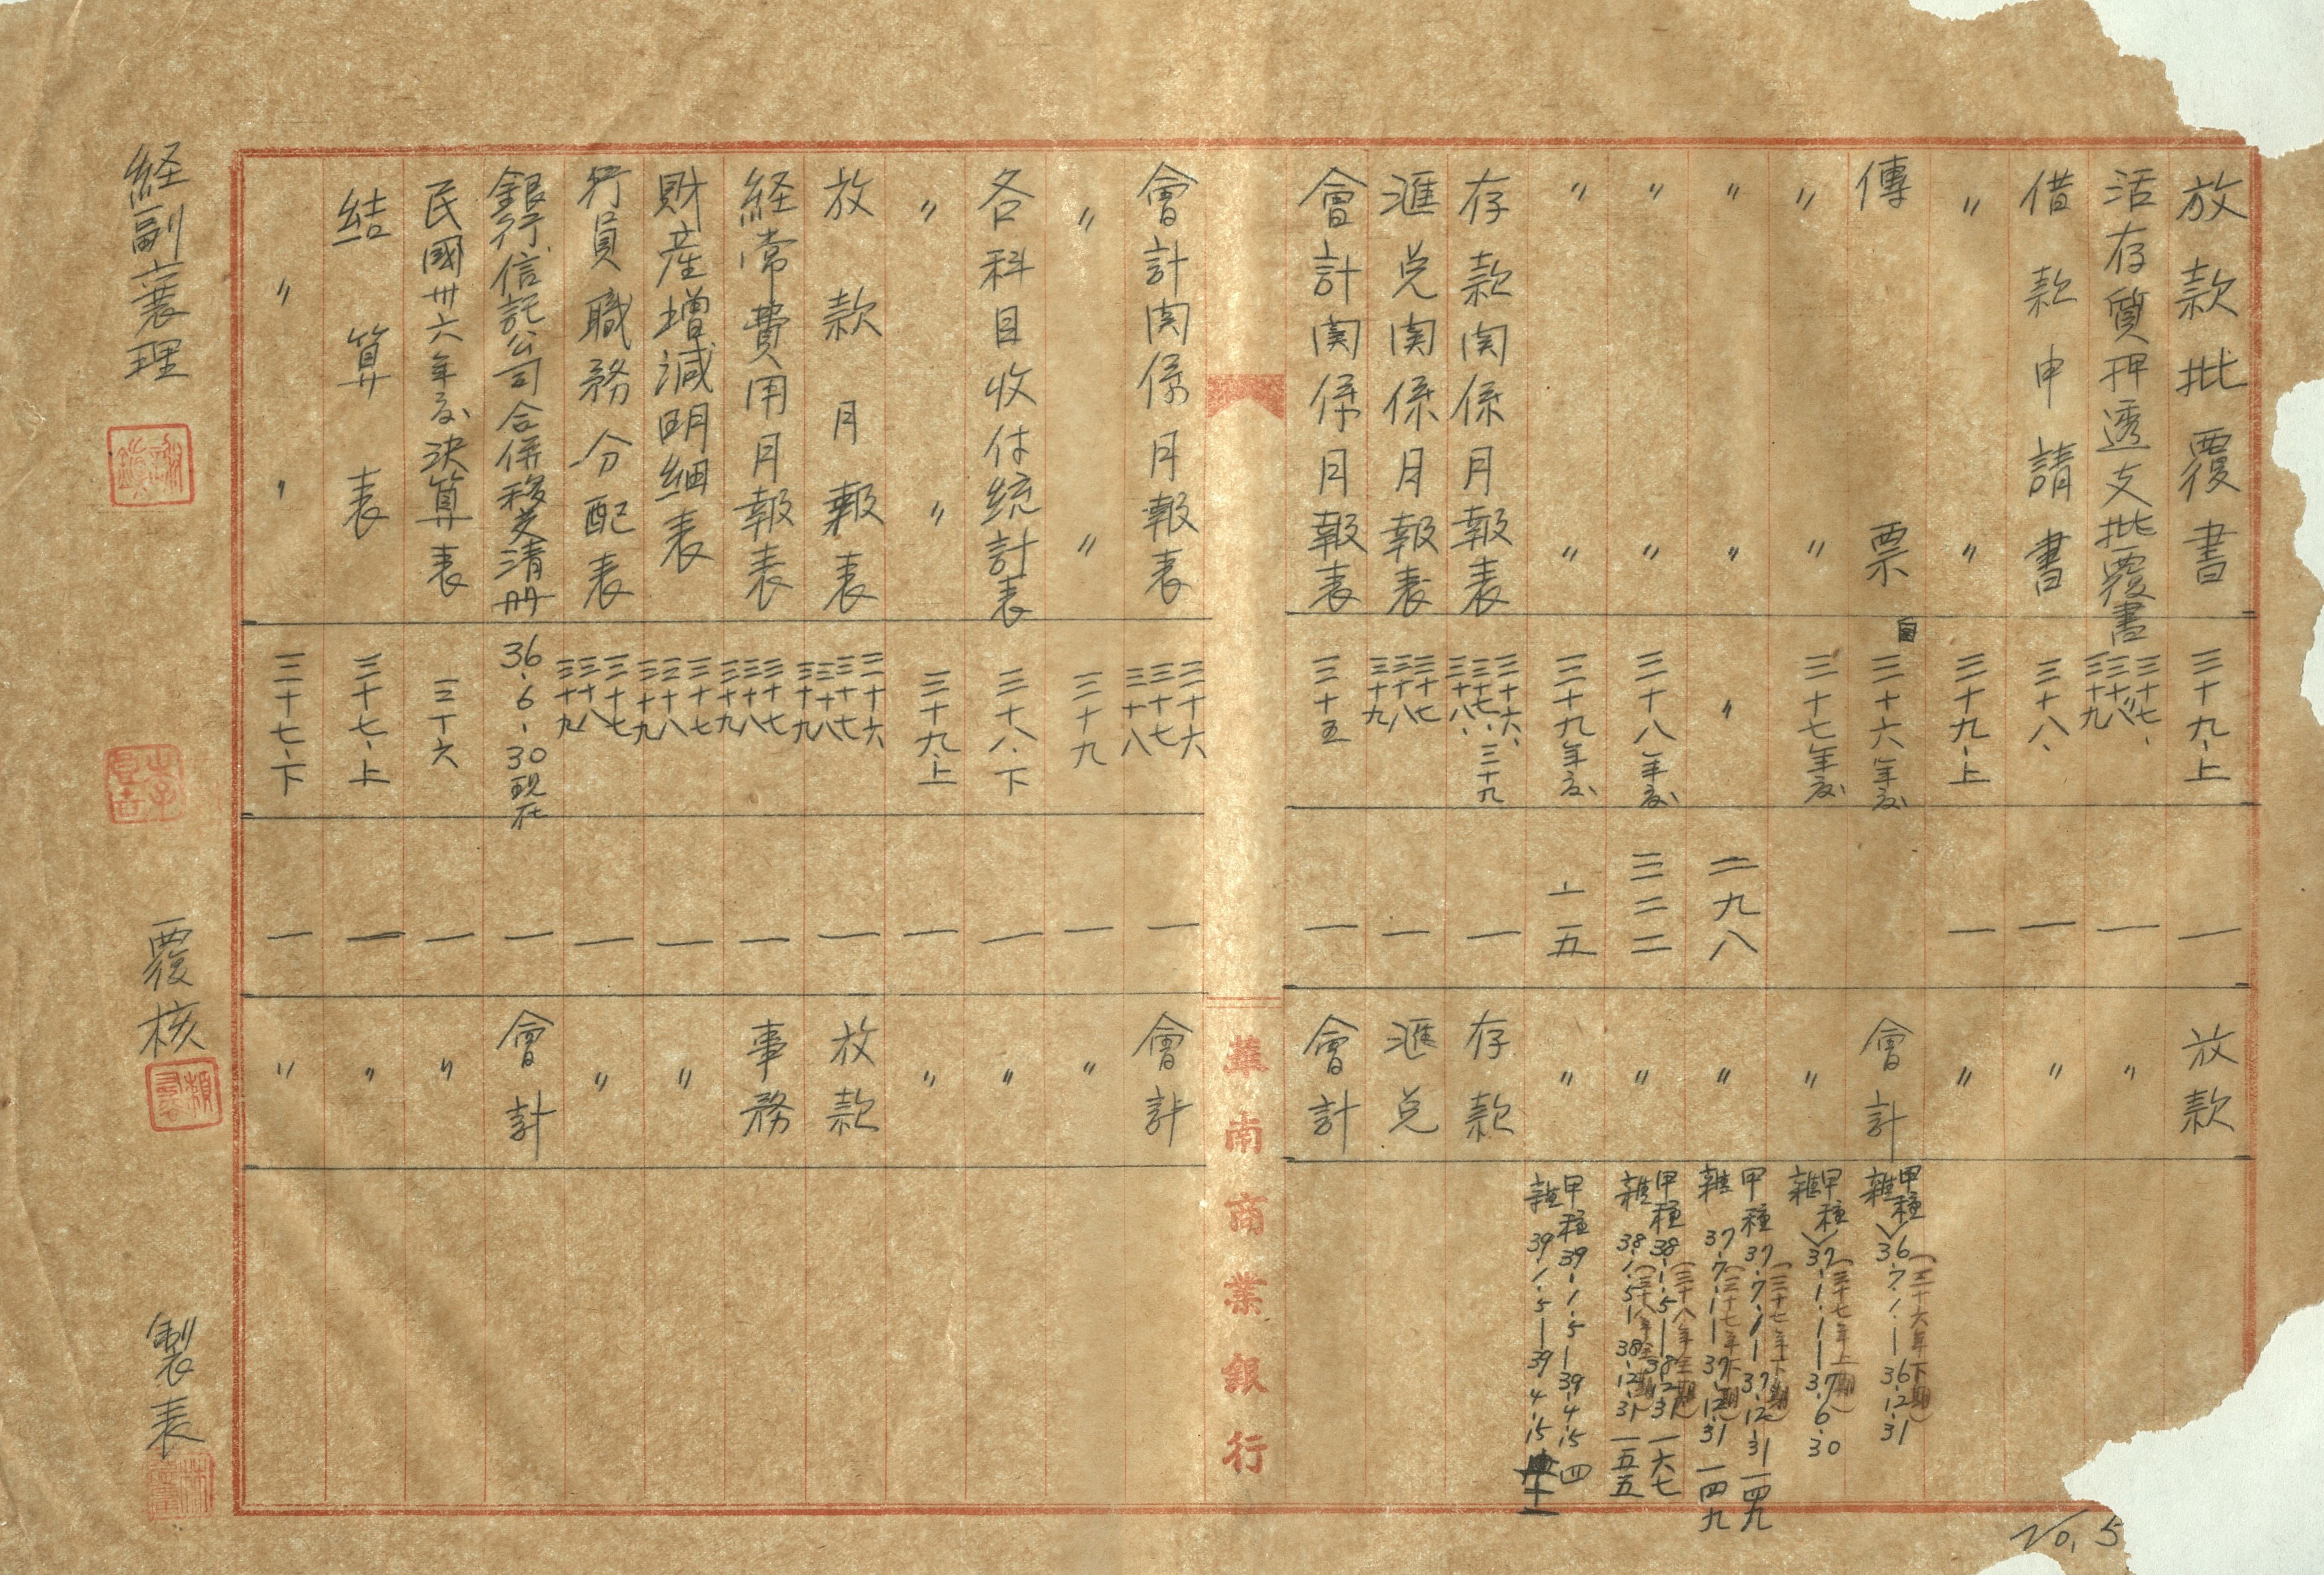 放款批覆書 三十九、上 一 放款
活存質押透支批覆書 三十七、三十八、三十九 一 〃
借款申請書 三十八、 一 〃
〃 〃 三十九、上 一 〃
傳票 三十六年度 會計 甲種 雜 36.7.1.—36.12.31 (三十六年下期)
〃 〃 三十七年度 〃 甲種 雜 37.1.1—37.6.30 (三十七年上期)
〃 〃 〃 二九八 〃 甲種 37.7.1—37.12.31 一四九 (三十七年下期) 雜 37.7.1—37.12.31 一四九 (三十七年下期)
〃 〃 三十八年度 三二二 〃 甲種 38.1.5—38.12.31 一六七 (三十八年全期) 雜 38.1.5—38.12.31 一五五 (三十八年全期)
〃 〃 三十九年度 一五 〃 甲種 39.1.5—39.4.15 四 雜 39.1.5—39.4.15 十一
存款関係月報表 三十六、三十七、三十八、三十九 一 存款
滙兌関係月報表 三十七 三十八 三十九 一 滙兌
會計関係月報表 三十五 一 會計
華南商業銀行
會計関係月報表 三十六 三十七 三十八 一 會計
〃 〃 三十九 一 〃
各科目收付統計表 三十八.下 一 〃
〃 〃 三十九.上 一 〃
放款月報表 三十六 三十七 三十八 三十九 一 放款
経常費用月報表 三十七 三十八 三十九 一 事務
財産増減明細表 三十七 三十八 三十九 一 〃
行員職務分配表 三十七 三十八 三十九 一 〃
銀行信託公司合併移交清册 36.6.30現在 一 會計
民國卅六年度決算表 三十六 一 〃
結算表 三十七、上 一 〃
〃 〃 三十七、下 一 〃
経副襄理
覆核
製表
No. 5